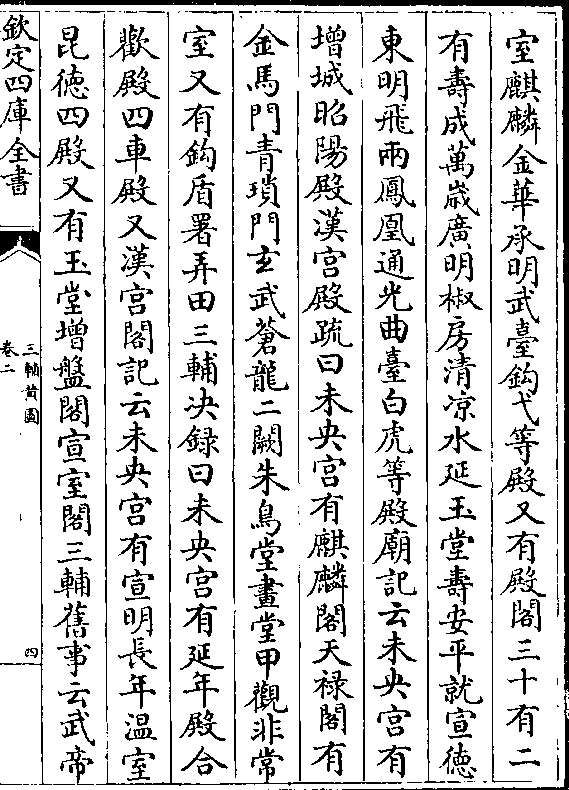 室麒麟金華承明武臺鈎弋等殿又有殿閣三十有二
有壽成萬嵗廣明椒房清凉水延玉堂壽安平就宣德
東明飛雨鳳凰通光曲臺白虎等殿廟記云未央宫有
增城昭陽殿漢宫殿疏曰未央宫有麒麟閣天禄閣有
金馬門青瑣門玄武蒼龍二闕朱鳥堂畫堂甲觀非常
室又有鈎盾署弄田三輔决録曰未央宫有延年殿合
歡殿四車殿又漢宫閣記云未央宫有宣明長年温室
昆德四殿又有玉堂增盤閣宣室閣三輔舊事云武帝
欽定四庫全書
三輔黄圖
卷二
四